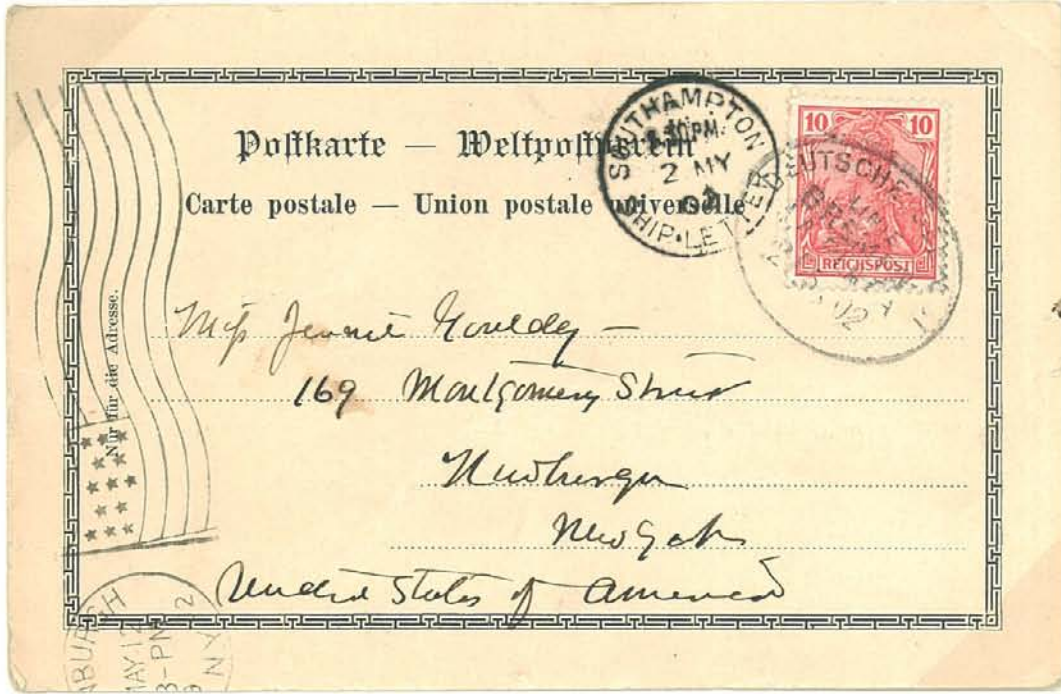 Postkarte — Weltpostverein
Carte postale — Union postale universelle
SOUTHAMPTON
PM
2 MY
02
SHIP·LETTER
10 10
REICHSPOST
DEUTSCHE
LINIE
BREMEN
02
Nur für die Adresse.
Miss Jennie
169 Montgomery Street
Newburgh
New York
United States of America
BURGH
MAY 12
3-PM
N.Y.
2